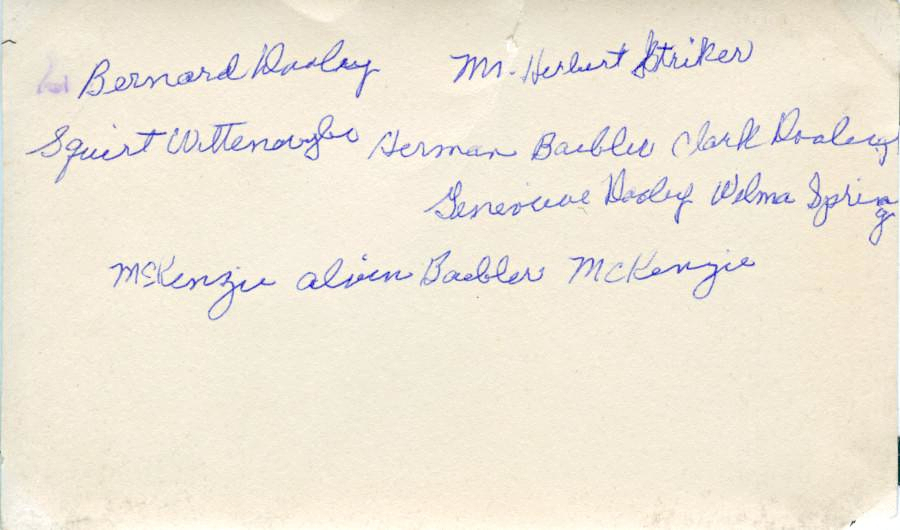 Bernard Dooley Mr. Herbert Striker
Squirt Herman Baebler Clark Dooley
Genevieve Dooley Wilma Spring
McKenzie Alvin Baebler McKenzie